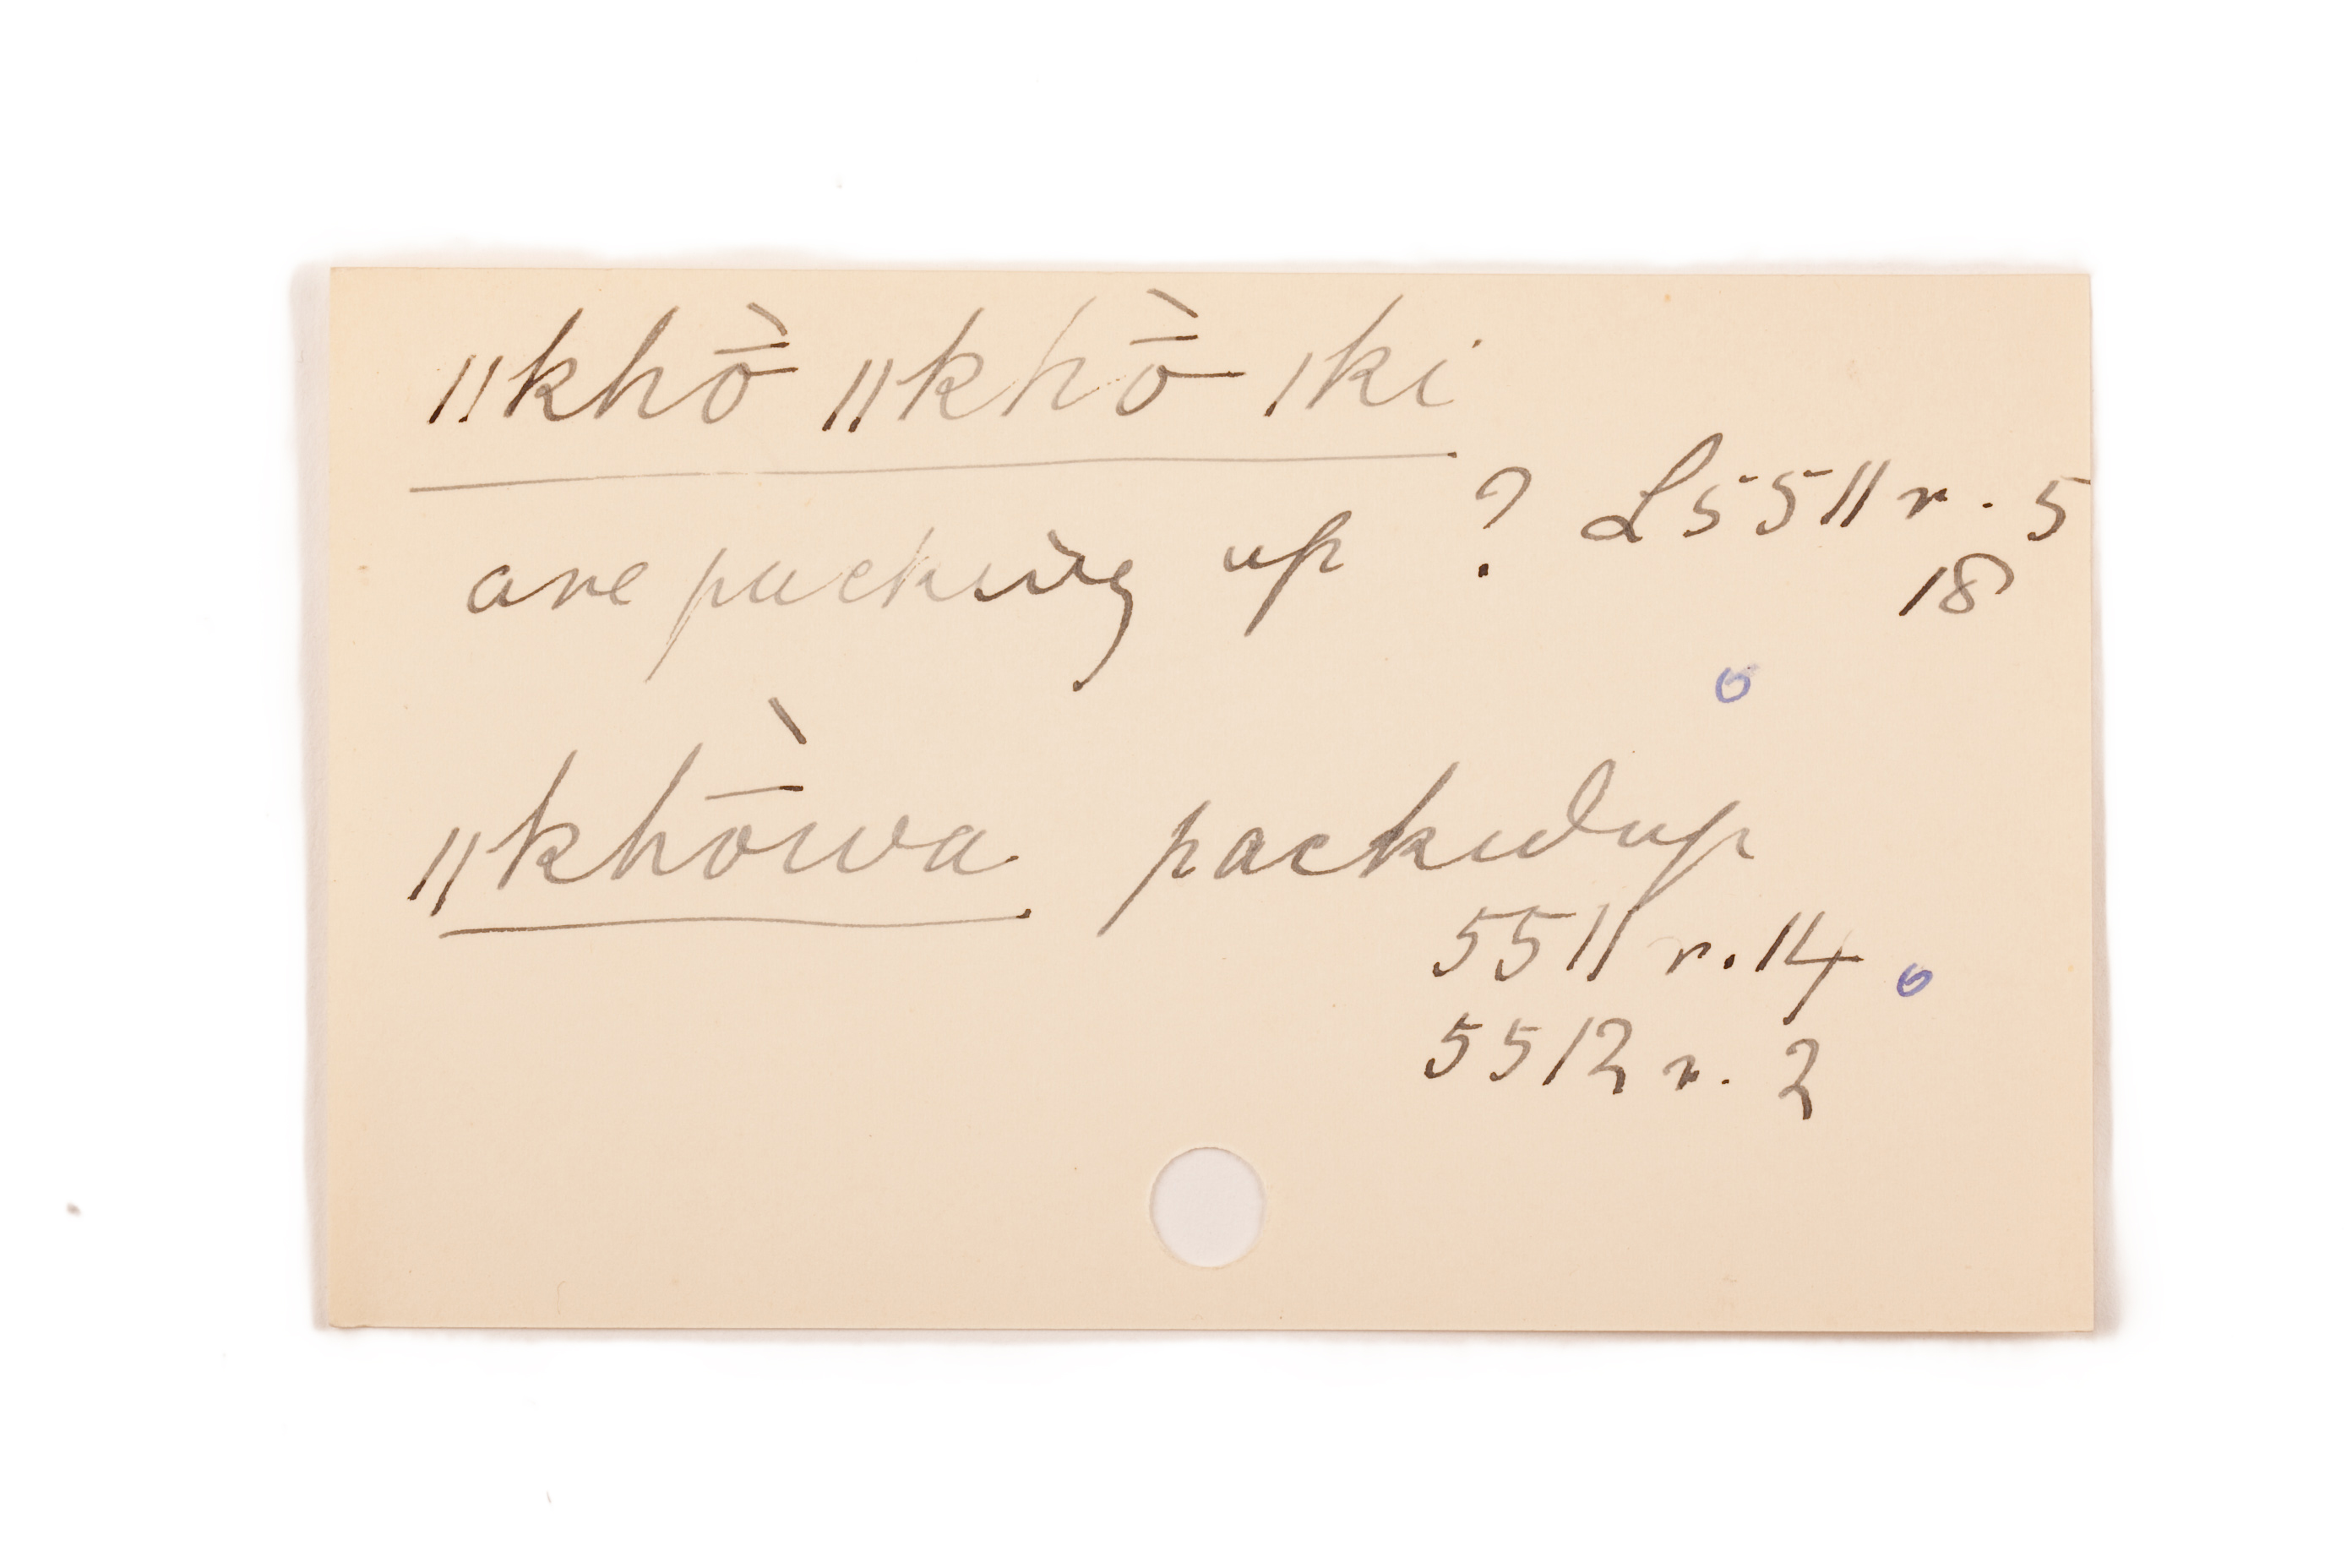 ǁkhṑ ǁkhṑ ǀki
are packing up ? L5511 r. 5
18
ǁkhṑwa packed up
5511 r. 14
5512 r. 2